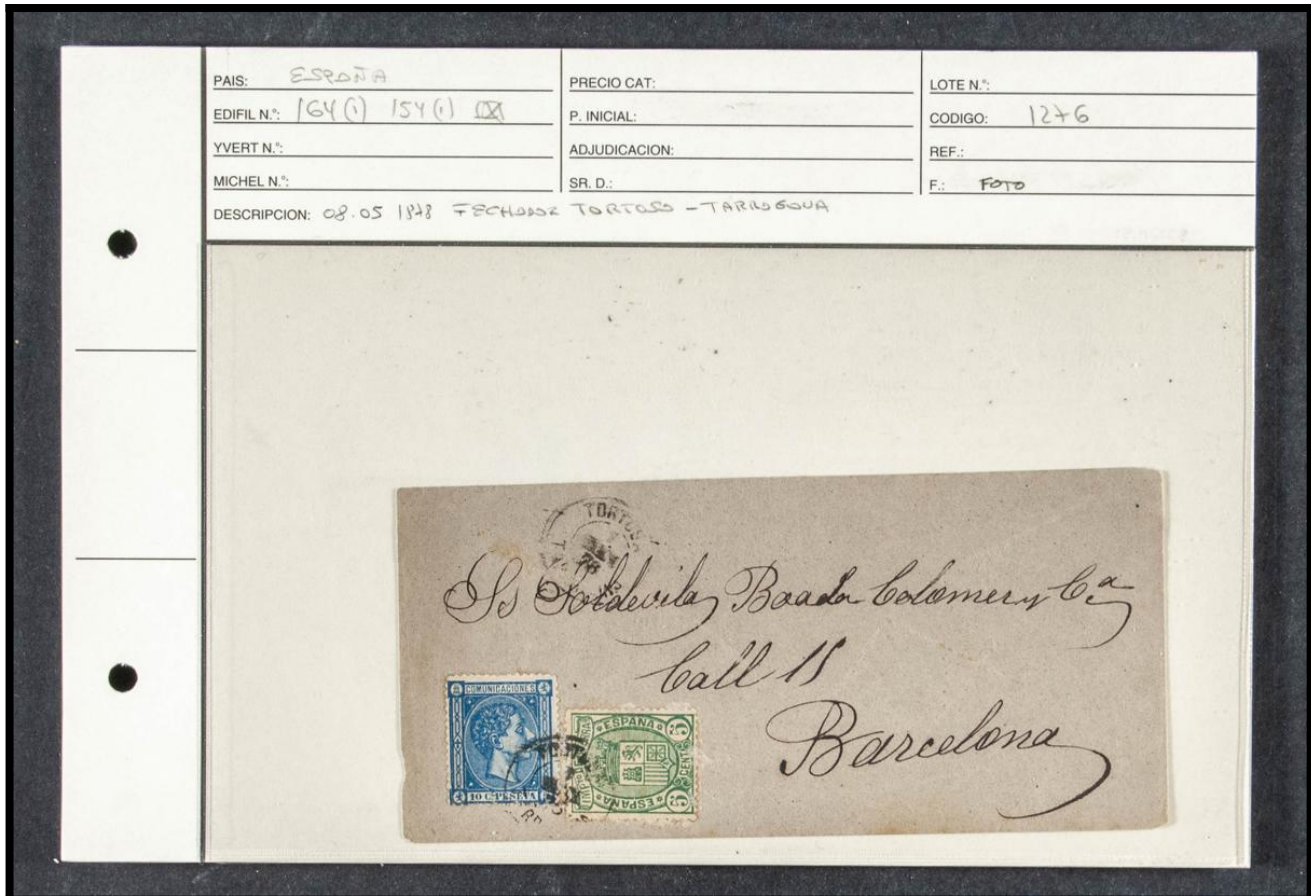 PAIS: ESPAÑA
EDIFIL N.º: 164 (1) 154 (1)
YVERT N.º:
MICHEL N.º:
PRECIO CAT:
P. INICIAL:
ADJUDICACION:
SR. D.:
LOTE N.º:
CODIGO: 1276
REF.:
F.: FOTO
DESCRIPCION: 08.05 1878 FECHADOR TORTOSA - TARRAGONA
TORTOSA
Ss Soldevila, Boada Colomer y Cª
Call 15
Barcelona
COMUNICACIONES
10 C. PESETA
ESPAÑA
5 CENTS
ESPAÑA